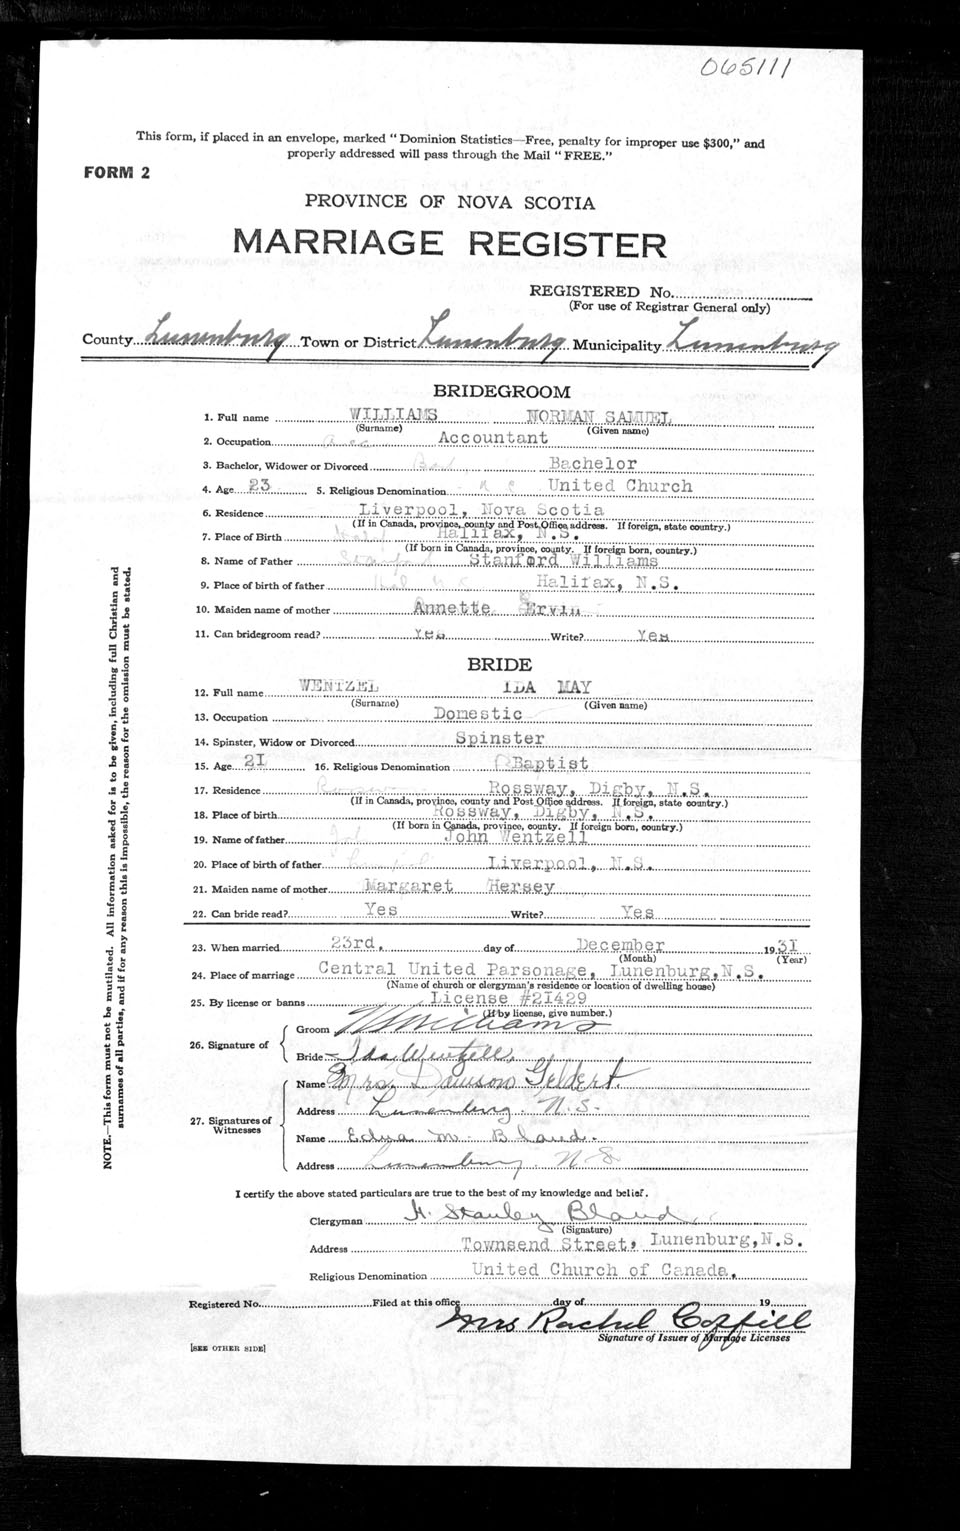 065111
This form, if placed in an envelope, marked "Dominion Statistics—Free, penalty for improper use $300," and
properly addressed will pass through the Mail "FREE."
FORM 2
PROVINCE OF NOVA SCOTIA
MARRIAGE REGISTER
REGISTERED No.
(For use of Registrar General only)
County Lunenburg Town or District Lunenburg Municipality Lunenburg
BRIDEGROOM
1. Full name WILLIAMS NORMAN SAMUEL
(Surname) (Given name)
2. Occupation Accountant
3. Bachelor, Widower or Divorced Bachelor
4. Age 23 5. Religious Denomination United Church
6. Residence Liverpool, Nova Scotia
(If in Canada, province, county and Post Office address. If foreign, state country.)
7. Place of Birth Halifax, N.S.
(If born in Canada, province, county. If foreign born, country.)
8. Name of Father Stanford Williams
9. Place of birth of father Halifax, N.S.
10. Maiden name of mother Annette Ervin
11. Can bridegroom read? Yes Write? Yes
BRIDE
12. Full name WENTZEL IDA MAY
(Surname) (Given name)
13. Occupation Domestic
14. Spinster, Widow or Divorced Spinster
15. Age 21 16. Religious Denomination Baptist
17. Residence Rossway, Digby, N.S.
(If in Canada, province, county and Post Office address. If foreign, state country.)
18. Place of birth Rossway, Digby, N.S.
(If born in Canada, province, county. If foreign born, country.)
19. Name of father John Wentzell
20. Place of birth of father Liverpool, N.S.
21. Maiden name of mother Margaret Hersey
22. Can bride read? Yes Write? Yes
23. When married 23rd. day of December 1931
(Month) (Year)
24. Place of marriage Central United Parsonage, Lunenburg, N.S.
(Name of church or clergyman's residence or location of dwelling house)
25. By license or banns License #21429
(If by license, give number.)
26. Signature of
Groom Williams
Bride Ida Wentzell.
27. Signatures of Witnesses
Name Mrs. Dawson Geldert.
Address Lunenburg. N.S.
Name Edna M. Bland.
Address Lunenburg. N S
I certify the above stated particulars are true to the best of my knowledge and belief.
Clergyman H. Stanley Bland
(Signature)
Address Townsend Street, Lunenburg, N.S.
Religious Denomination United Church of Canada.
Registered No. Filed at this office day of 19
Mrs Rachel Coffill
Signature of Issuer of Marriage Licenses
[SEE OTHER SIDE]
NOTE.—This form must not be mutilated. All information asked for is to be given, including full Christian and
surnames of all parties, and if for any reason this is impossible, the reason for the omission must be stated.